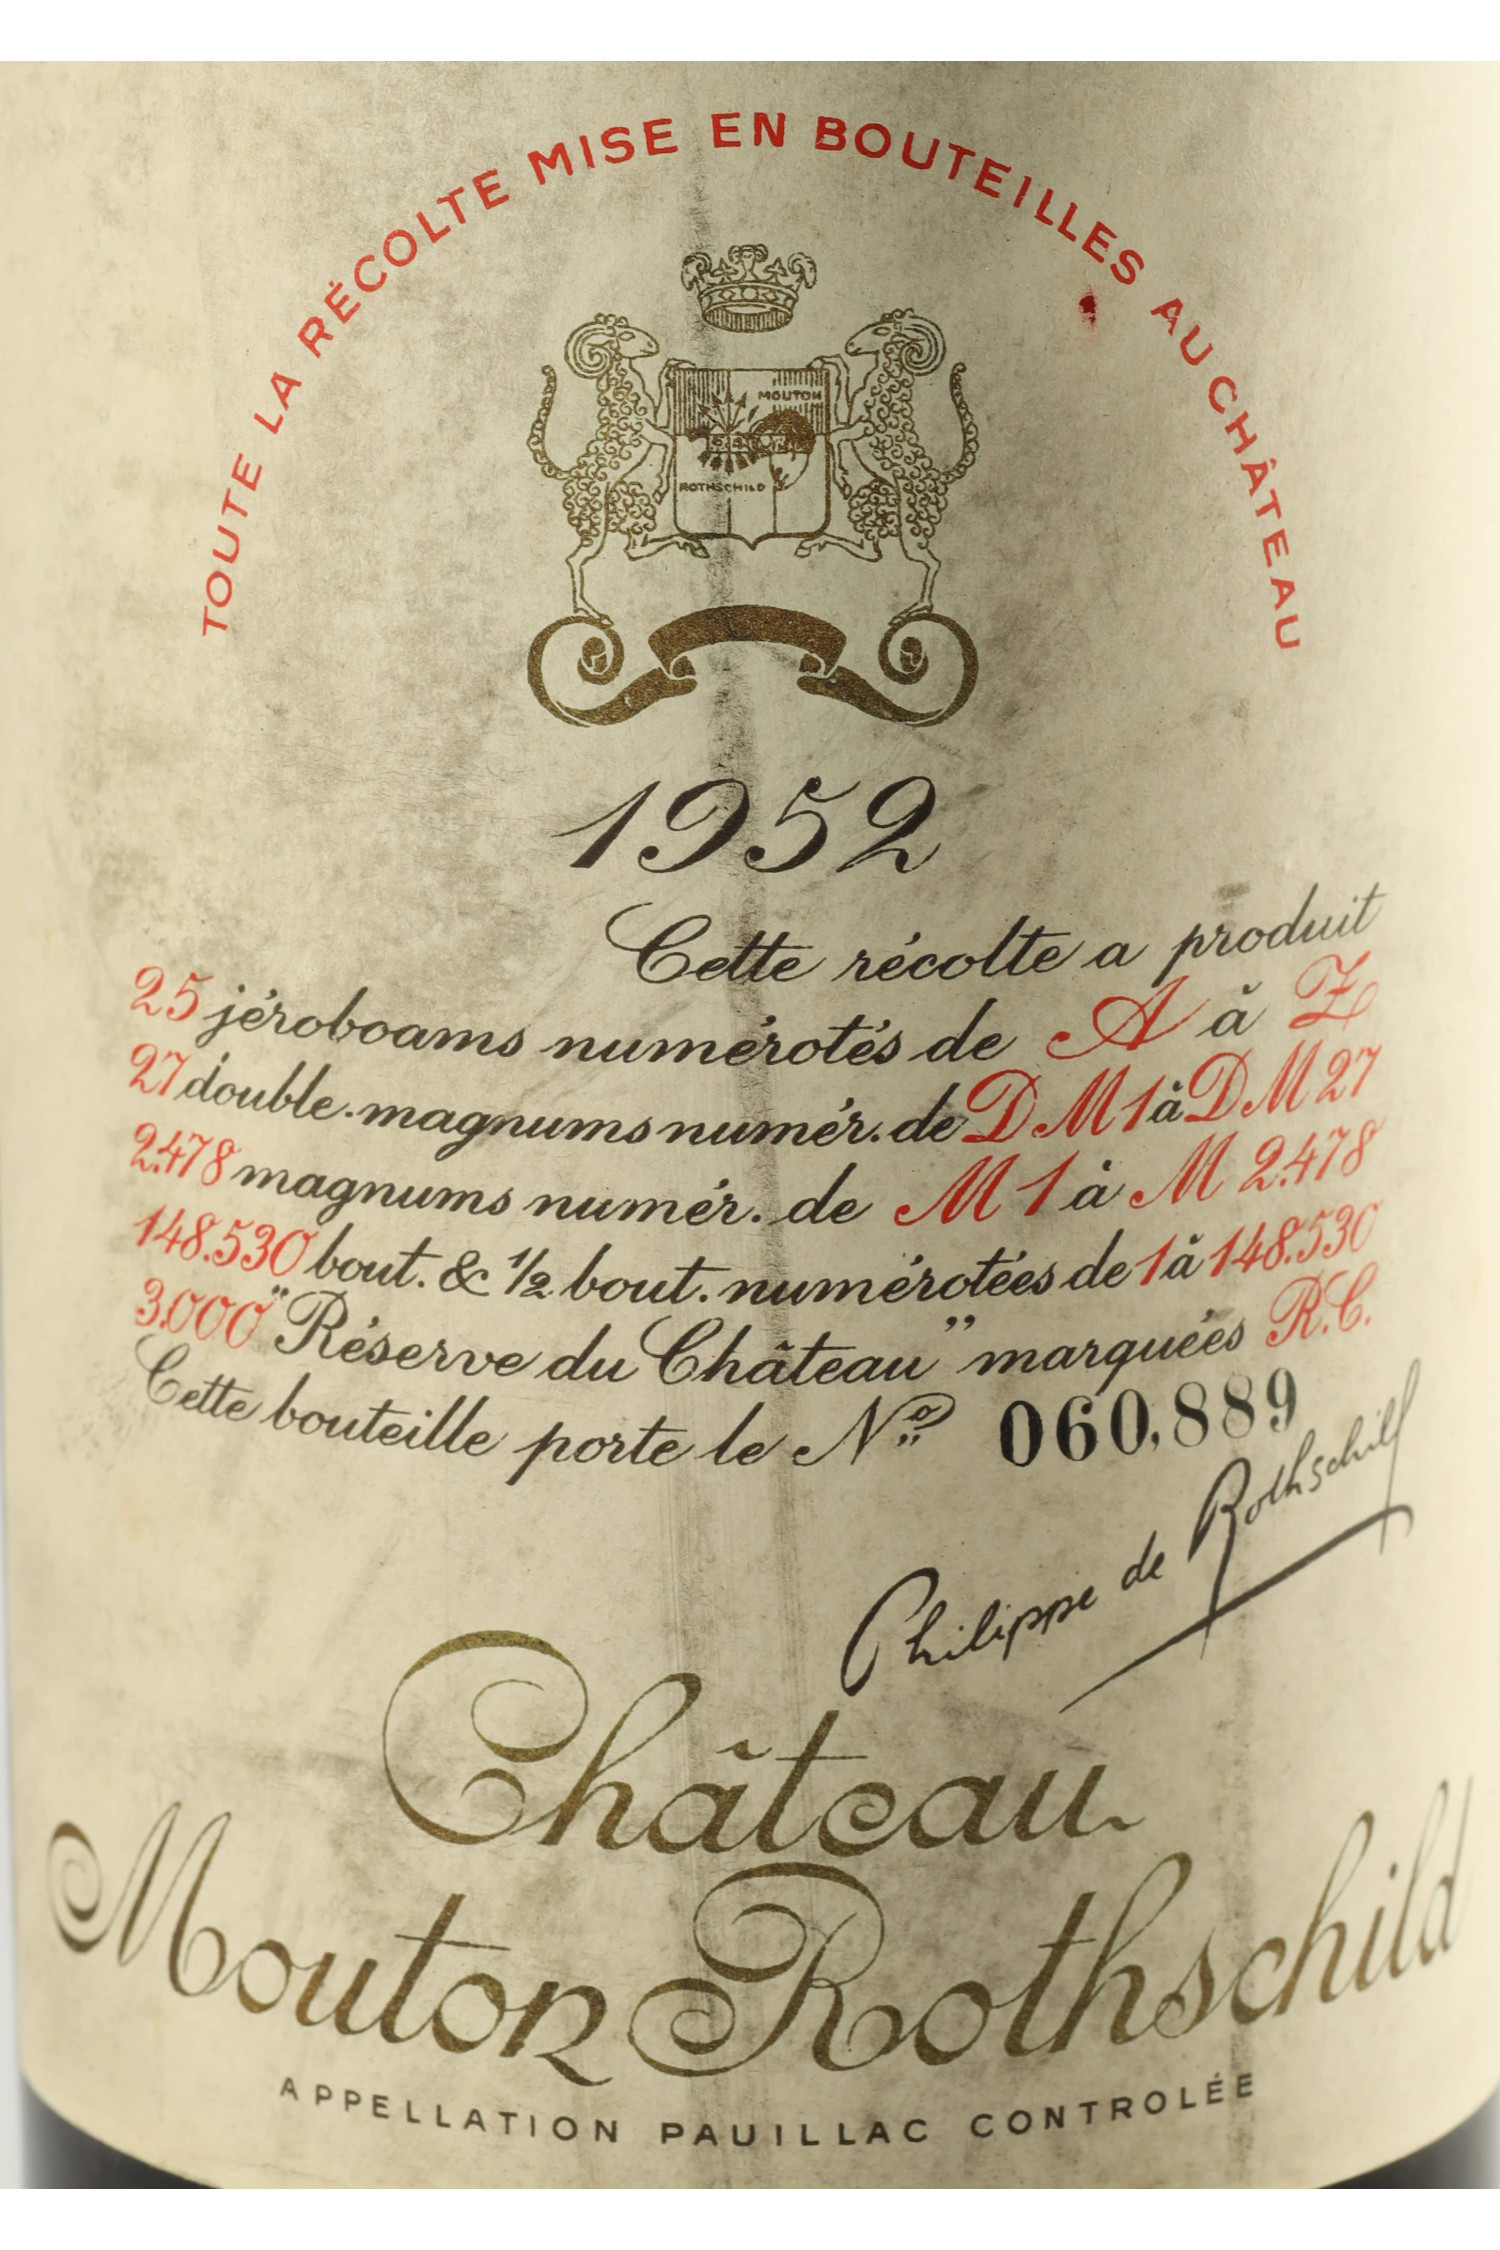 TOUTE LA RÉCOLTE MISE EN BOUTEILLES AU CHÂTEAU
MOUTON
ROTHSCHILD
1952
Cette récolte a produit
25 jéroboams numérotés de A à Z
27 double-magnums numér. de D M 1 à D M 27
2.478 magnums numér. de M 1 à M 2.478
148.530 bout. & 1/2 bout. numérotées de 1 à 148.530
3.000 "Réserve du Château" marquées R.C.
Cette bouteille porte le Nº 060,889
Philippe de Rothschild
Château
Mouton Rothschild
APPELLATION PAUILLAC CONTROLÉE